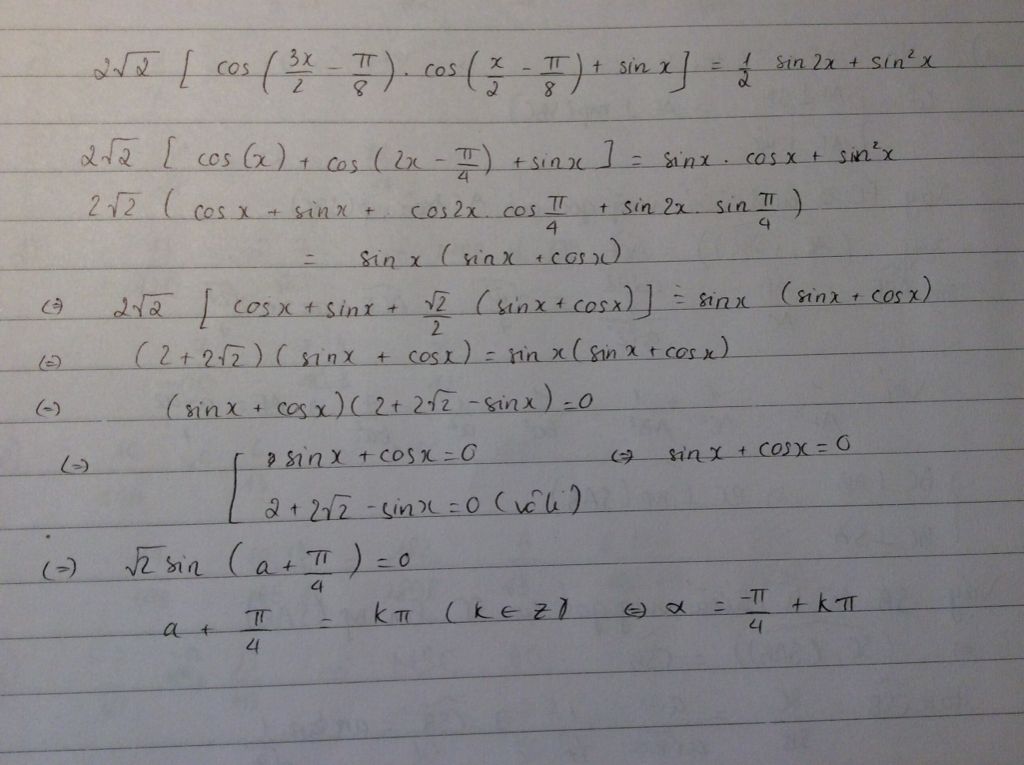 2√2 [ cos (3x/2 - π/8) . cos (x/2 - π/8) + sin x ] = 1/2 sin 2x + sin²x
2√2 [ cos (x) + cos (2x - π/4) + sin x ] = sin x . cos x + sin²x
2√2 ( cos x + sin x + cos 2x . cos π/4 + sin 2x . sin π/4 )
= sin x ( sin x + cos x)
(=) 2√2 [ cos x + sin x + √2/2 ( sin x + cos x) ] = sin x ( sin x + cos x)
(=) ( 2 + 2√2 ) ( sin x + cos x) = sin x ( sin x + cos x)
(=) ( sin x + cos x) ( 2 + 2√2 - sin x) = 0
(=) [ sin x + cos x = 0 (=) sin x + cos x = 0
2 + 2√2 - sin x = 0 (vô lí)
(=) √2 sin ( a + π/4 ) = 0
a + π/4 = kπ ( k ∈ z) (=) x = -π/4 + kπ